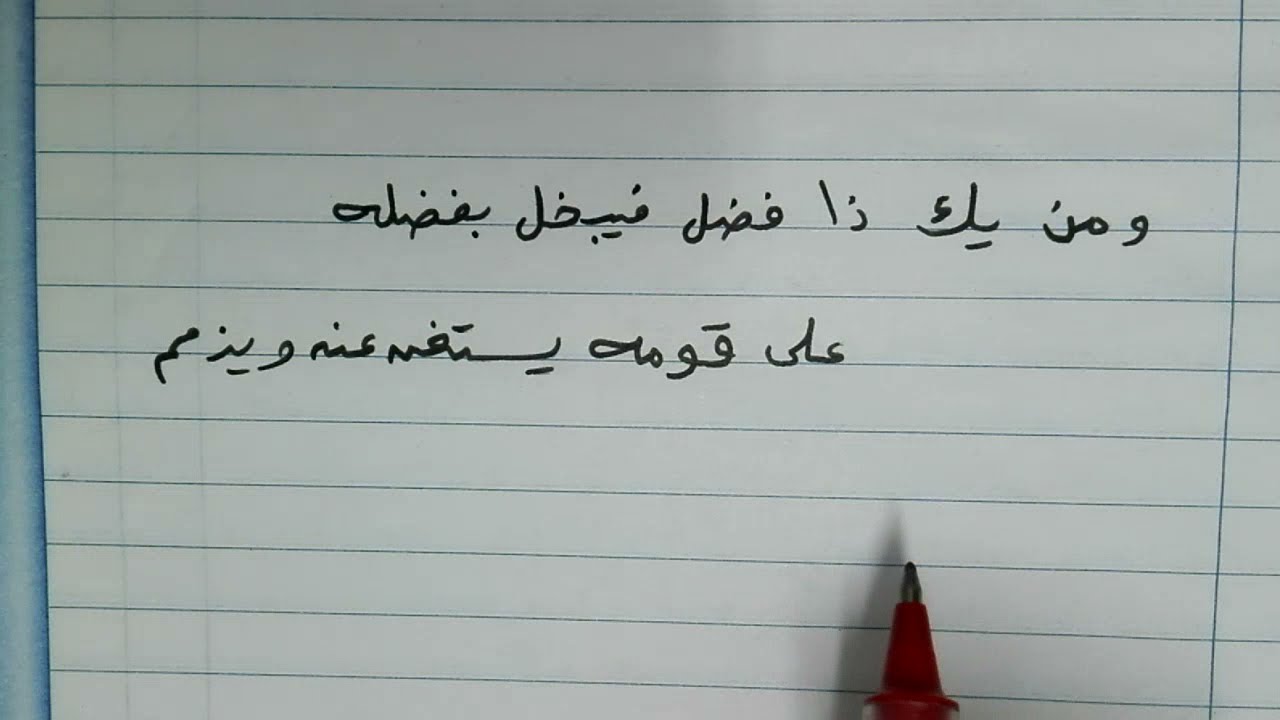 ومن يك ذا فضل فيبخل بفضله
على قومه يستغن عنه ويذمم